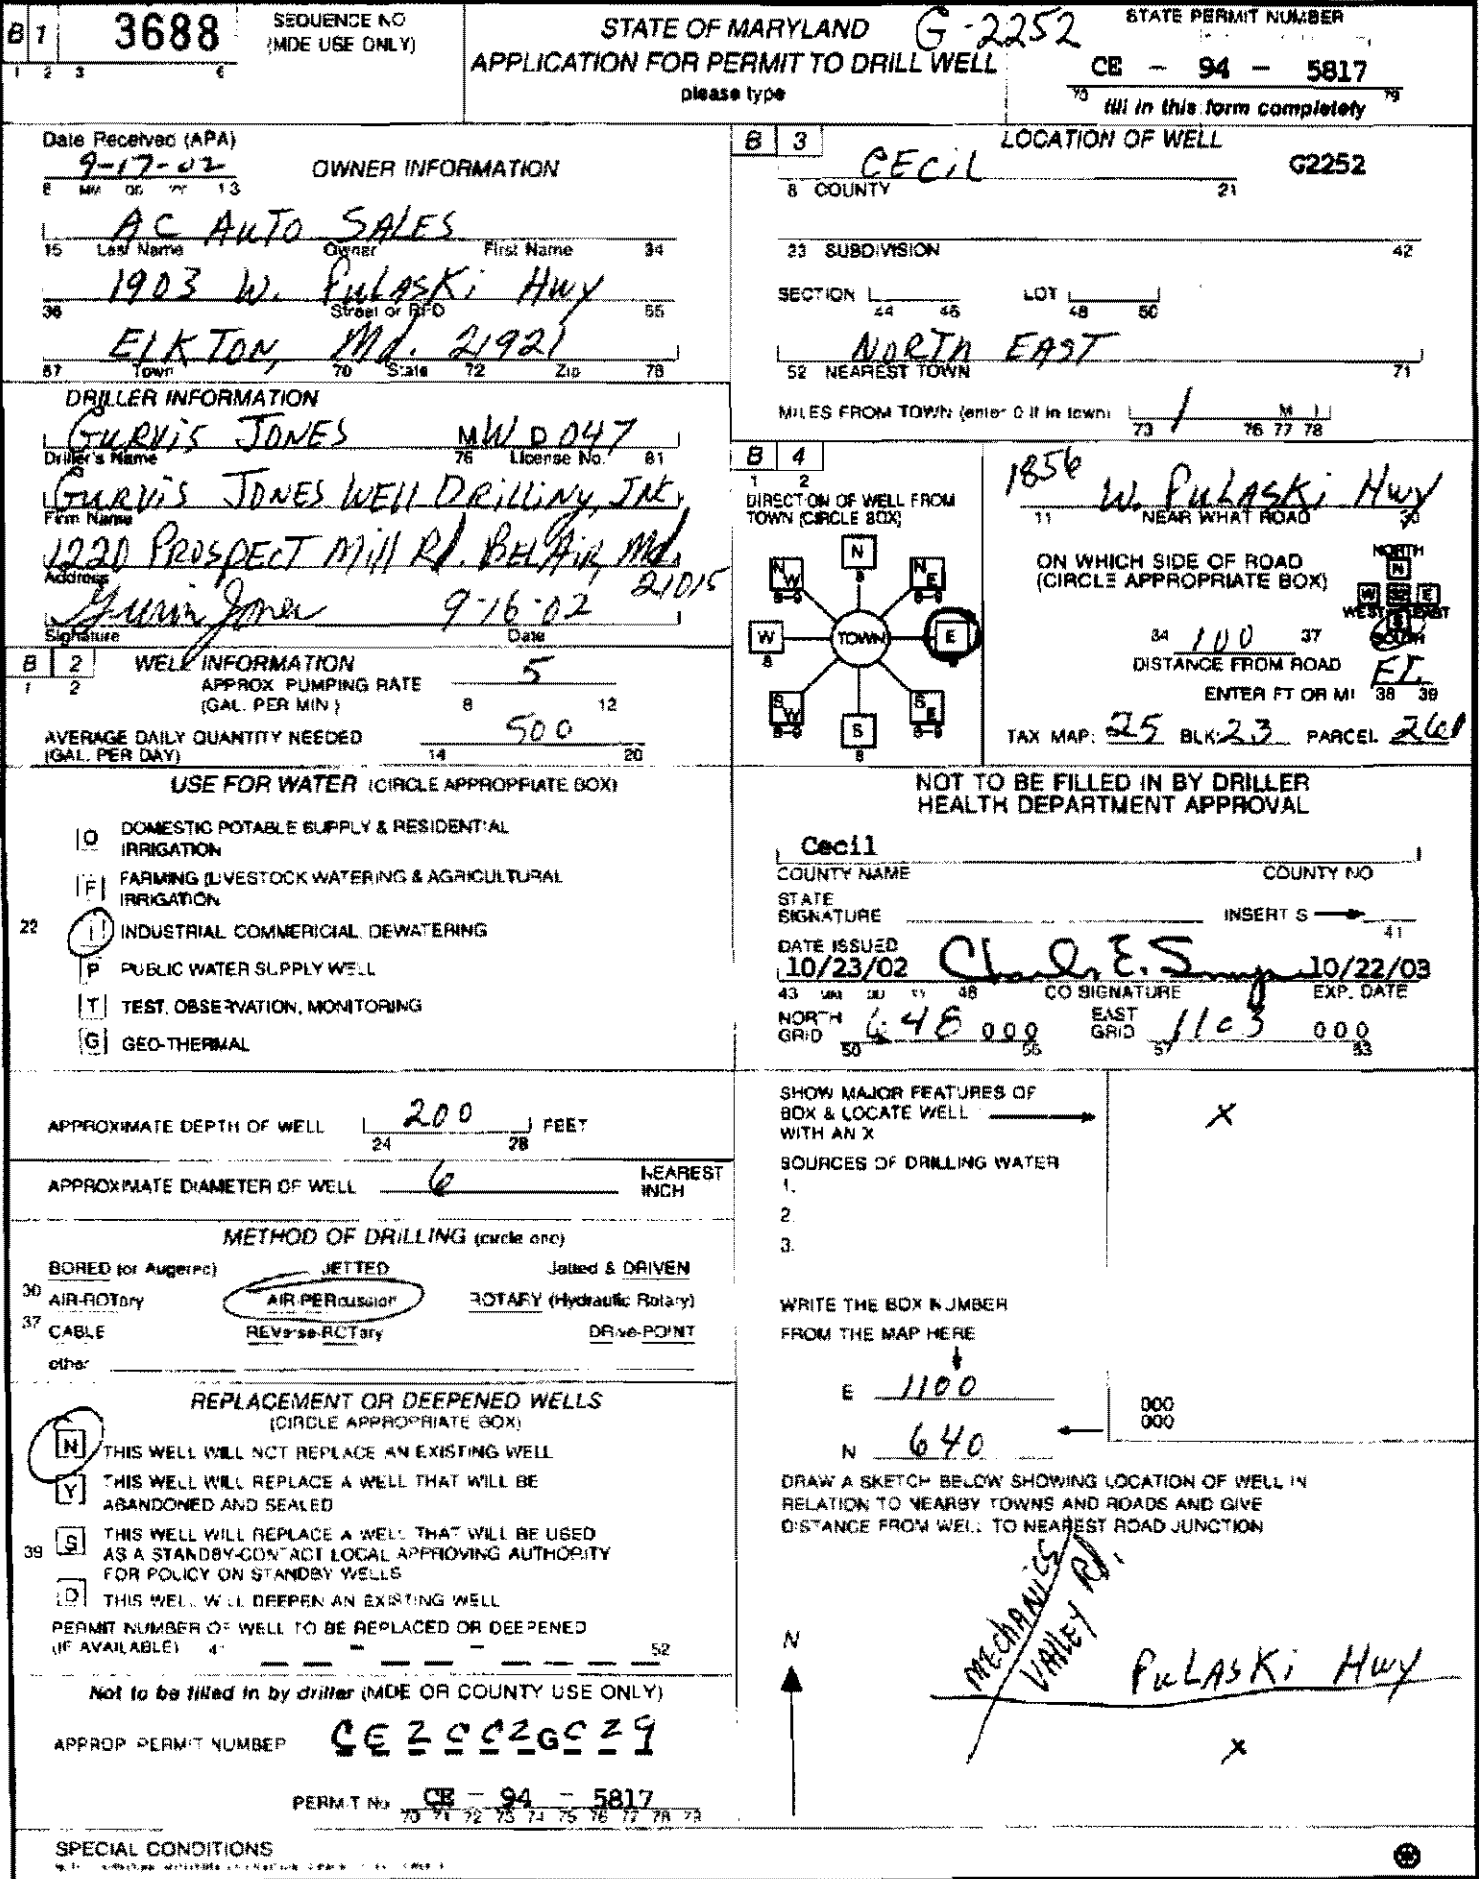 B 1 3688 SEQUENCE NO
(MDE USE ONLY)
1 2 3 6
STATE OF MARYLAND G-2252
APPLICATION FOR PERMIT TO DRILL WELL
please type
STATE PERMIT NUMBER
CE - 94 - 5817
70 79
fill in this form completely
Date Received (APA)
9-17-02
8 MM DD YY 13
OWNER INFORMATION
AC AUTO SALES
15 Last Name Owner First Name 34
1903 W. PULASKi Hwy
36 Street or RFD 55
ELKTON, Md. 21921
57 Town 70 State 72 Zip 76
DRILLER INFORMATION
GURVIS JONES MWD047
Driller's Name 76 License No. 81
GURVIS JONES WELL DRILLING, INC,
Firm Name
1220 PROSPECT Mill Rd. BEL AIR, Md.
21015
Address
Gurvis Jones 9-16-02
Signature Date
B 2 WELL INFORMATION
1 2
APPROX. PUMPING RATE 5
(GAL. PER MIN.) 8 12
AVERAGE DAILY QUANTITY NEEDED 500
(GAL. PER DAY) 14 20
USE FOR WATER (CIRCLE APPROPRIATE BOX)
D DOMESTIC POTABLE SUPPLY & RESIDENTIAL
IRRIGATION
F FARMING (LIVESTOCK WATERING & AGRICULTURAL
IRRIGATION
22 I INDUSTRIAL COMMERICIAL, DEWATERING
P PUBLIC WATER SUPPLY WELL
T TEST, OBSERVATION, MONITORING
G GEO-THERMAL
APPROXIMATE DEPTH OF WELL 200 FEET
24 28
APPROXIMATE DIAMETER OF WELL 6 NEAREST
INCH
METHOD OF DRILLING (circle one)
BORED (or Augered) JETTED Jetted & DRIVEN
30 AIR-ROTary AIR-PERcussion ROTARY (Hydraulic Rotary)
37 CABLE REVerse-ROTary DRive-POINT
other
REPLACEMENT OR DEEPENED WELLS
(CIRCLE APPROPRIATE BOX)
N THIS WELL WILL NOT REPLACE AN EXISTING WELL
Y THIS WELL WILL REPLACE A WELL THAT WILL BE
ABANDONED AND SEALED
39 S THIS WELL WILL REPLACE A WELL THAT WILL BE USED
AS A STANDBY-CONTACT LOCAL APPROVING AUTHORITY
FOR POLICY ON STANDBY WELLS
D THIS WELL WILL DEEPEN AN EXISTING WELL
PERMIT NUMBER OF WELL TO BE REPLACED OR DEEPENED
(IF AVAILABLE) 41 - - 52
Not to be filled in by driller (MDE OR COUNTY USE ONLY)
APPROP. PERMIT NUMBER CE2002G029
PERMIT No. CE - 94 - 5817
70 71 72 73 74 75 76 77 78 79
SPECIAL CONDITIONS
B 3 LOCATION OF WELL
CECiL G2252
8 COUNTY 21
23 SUBDIVISION 42
SECTION LOT
44 46 48 50
NORTH EAST
52 NEAREST TOWN 71
MILES FROM TOWN (enter 0 if in town) 1 M I
73 76 77 78
B 4
1 2
DIRECTION OF WELL FROM
TOWN (CIRCLE BOX)
N
NW NE
W TOWN E
SW SE
S
1856 W. PULASKi Hwy
11 NEAR WHAT ROAD 30
ON WHICH SIDE OF ROAD
(CIRCLE APPROPRIATE BOX)
NORTH
N
W E
WEST EAST
S
SOUTH
34 100 37
DISTANCE FROM ROAD
ENTER FT OR MI Ft.
38 39
TAX MAP: 25 BLK: 23 PARCEL 261
NOT TO BE FILLED IN BY DRILLER
HEALTH DEPARTMENT APPROVAL
Cecil
COUNTY NAME COUNTY NO
STATE
SIGNATURE INSERT S
41
DATE ISSUED
10/23/02 10/22/03
43 MM DD YY 48 CO SIGNATURE EXP. DATE
NORTH
GRID 648 000
50 55
EAST
GRID 1103 000
57 63
SHOW MAJOR FEATURES OF
BOX & LOCATE WELL
WITH AN X
X
SOURCES OF DRILLING WATER
1.
2.
3.
WRITE THE BOX NUMBER
FROM THE MAP HERE
E 1100
N 640
000
000
DRAW A SKETCH BELOW SHOWING LOCATION OF WELL IN
RELATION TO NEARBY TOWNS AND ROADS AND GIVE
DISTANCE FROM WELL TO NEAREST ROAD JUNCTION
MECHANICS
VALLEY Rd.
N
PULASKi Hwy
X